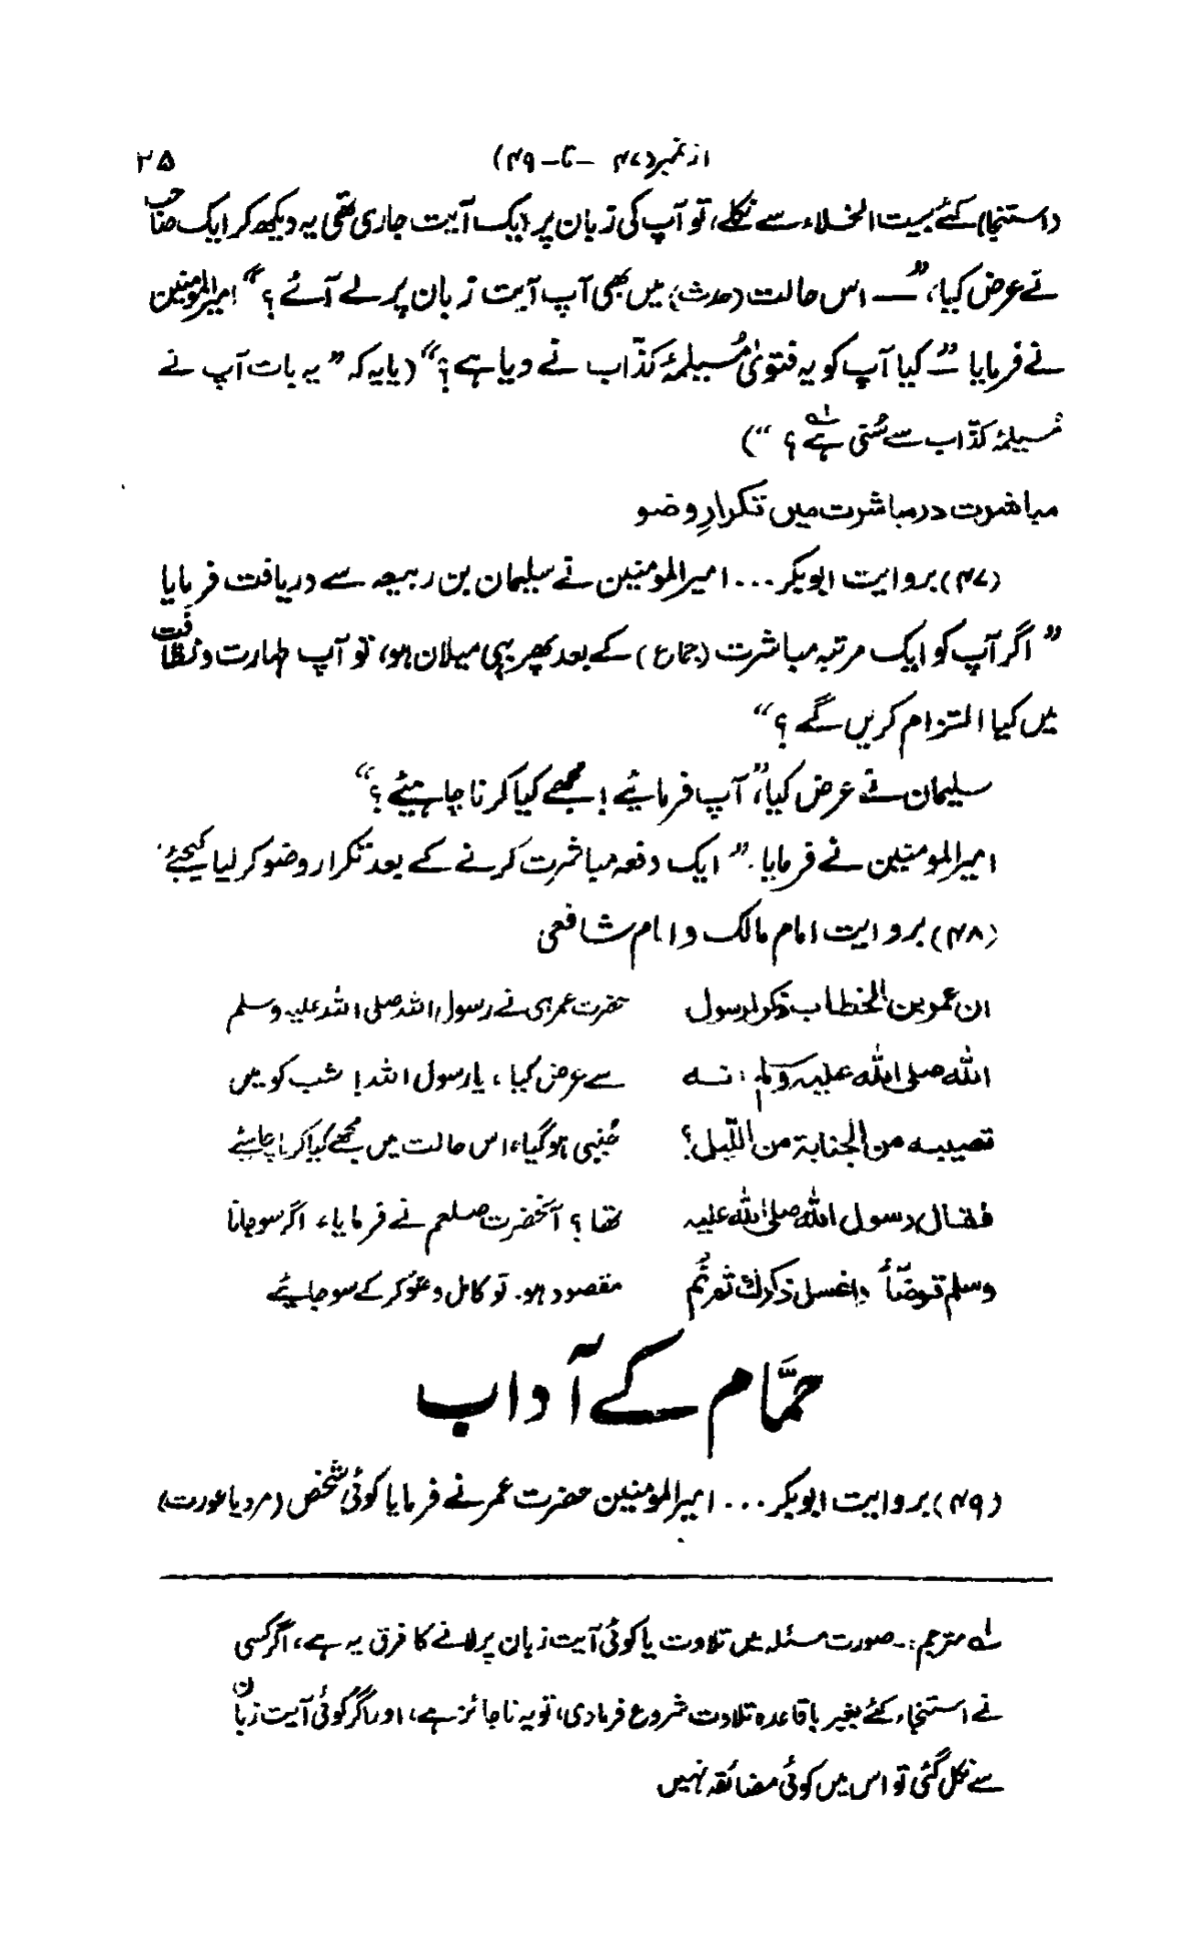 از نمبر (۴۷ – تا – ۴۹) ۲۵
(استنجا) کئے بیت الخلاء سے نکلے، تو آپ کی زبان پر ایک آیت جاری تھی یہ دیکھ کر ایک صاحب
نے عرض کیا، ”— اس حالت (حدث) میں بھی آپ آیت زبان پر لے آئے ؟“ امیر المومنین
نے فرمایا ”— کیا آپ کو یہ فتویٰ مُسیلمۂ کذّاب نے دیا ہے ؟“ (یا یہ کہ ”یہ بات آپ نے
مُسیلمۂ کذّاب سے سُنی ہے ؟“) لہ
مباشرت در مباشرت میں تکرارِ وضو
(۴۷) بروایت ابوبکر ... امیر المومنین نے سلیمان بن ربیعہ سے دریافت فرمایا
”اگر آپ کو ایک مرتبہ مباشرت (جماع) کے بعد پھر یہی میلان ہو، تو آپ طہارت و نظافت
میں کیا التزام کریں گے ؟“
سلیمان نے عرض کیا، ”آپ فرمائیے ! مجھے کیا کرنا چاہیئے ؟“
امیر المومنین نے فرمایا۔ ”ایک دفعہ مباشرت کرنے کے بعد تکرار وضو کر لیا کیجئے‘
(۴۸) بروایت امام مالک و امام شافعی
ان عمر بن الخطاب ذكر لرسول حضرت عمر ہی نے رسول اللہ صلی اللہ علیہ وسلم
الله صلى الله عليه وسلم : انه سے عرض کیا، یا رسول اللہ ! شب کو میں
تصيبه من الجنابة من اللّيل؟ جُنبی ہو گیا، اس حالت میں مجھے کیا کرنا چاہئے
فقال رسول الله صلى الله عليه تھا ؟ آنحضرت صلعم نے فرمایا، اگر سو جانا
وسلم توضّأ واغسل ذكرك ثم نم مقصود ہو۔ تو کامل وضو کر کے سو جائیے
حمّام کے آداب
(۴۹) بروایت ابوبکر ... امیر المومنین حضرت عمر نے فرمایا کوئی شخص (مرد یا عورت)
لہ مترجم :۔ صورت مسئلہ میں تلاوت یا کوئی آیت زبان پر لانے کا فرق یہ ہے، اگر کسی
نے استنجاء کئے بغیر باقاعدہ تلاوت شروع فرما دی، تو یہ ناجائز ہے، اور اگر کوئی آیت زبان
سے نکل گئی تو اس میں کوئی مضائقہ نہیں